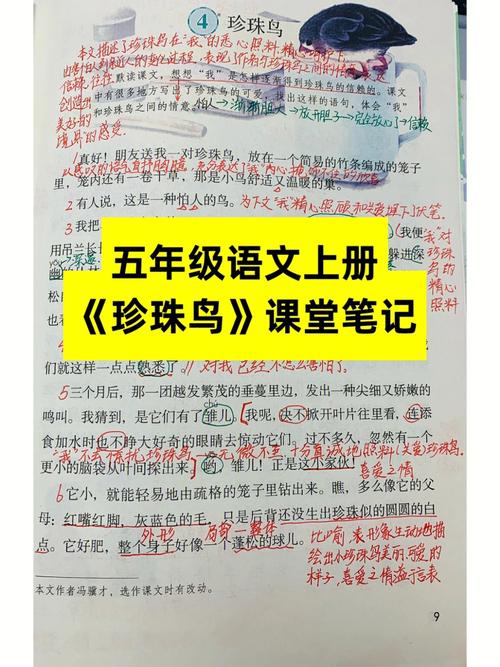 4 珍珠鸟
本文描述了珍珠鸟在"我"的悉心照料,精心呵护下,
信赖,往往
创造出
美好的
境界的感受。
默读课文,想想"我"是怎样逐渐得到珍珠鸟的信赖的。课文
中有很多地方写出了珍珠鸟的可爱,找出这样的语句,体会"我"
和珍珠鸟之间的情意。
怕人→渐渐胆大→放开胆子→完全放心→信赖
1真好!朋友送我一对珍珠鸟,放在一个简易的竹条编成的笼子
里,笼内还有一卷干草,那是小鸟舒适又温暖的巢。
2有人说,这是一种怕人的鸟。为下文"我"精心照顾和关爱埋下伏笔。
3我把
我便
用吊兰长长
躲进深
"我"对
珍珠鸟
的精心
照料
五年级语文上册
《珍珠鸟》课堂笔记
们就这样一点点熟悉了。//对我已经不怎么害怕了。
5三个月后,那一团越发繁茂的垂蔓里边,发出一种尖细又娇嫩的
chú
鸣叫。我猜到,是它们有了雏儿。我呢,决不掀开叶片往里看,连添
食加水时也不睁大好奇的眼睛去惊动它们。过不多久,忽然有一个
"我"不去惊扰珍珠鸟一元,微不至、十分真诚地照料(关爱)珍珠鸟。
更小的脑袋从叶间探出来。哟,雏儿!正是这小家伙!
喜爱之情
6它小,就能轻易地由疏格的笼子里钻出来。瞧,多么像它的父
母:红嘴红脚,灰蓝色的毛,只是后背还没生出珍珠似的圆圆的白
外形 局部 整体
点。它好肥,整个身子好像一个蓬松的球儿。
比喻,表形象生动地描
绘出小珍珠鸟美丽、可爱的
样子,喜爱之情溢于言表
本文作者冯骥才,选作课文时有改动。
9